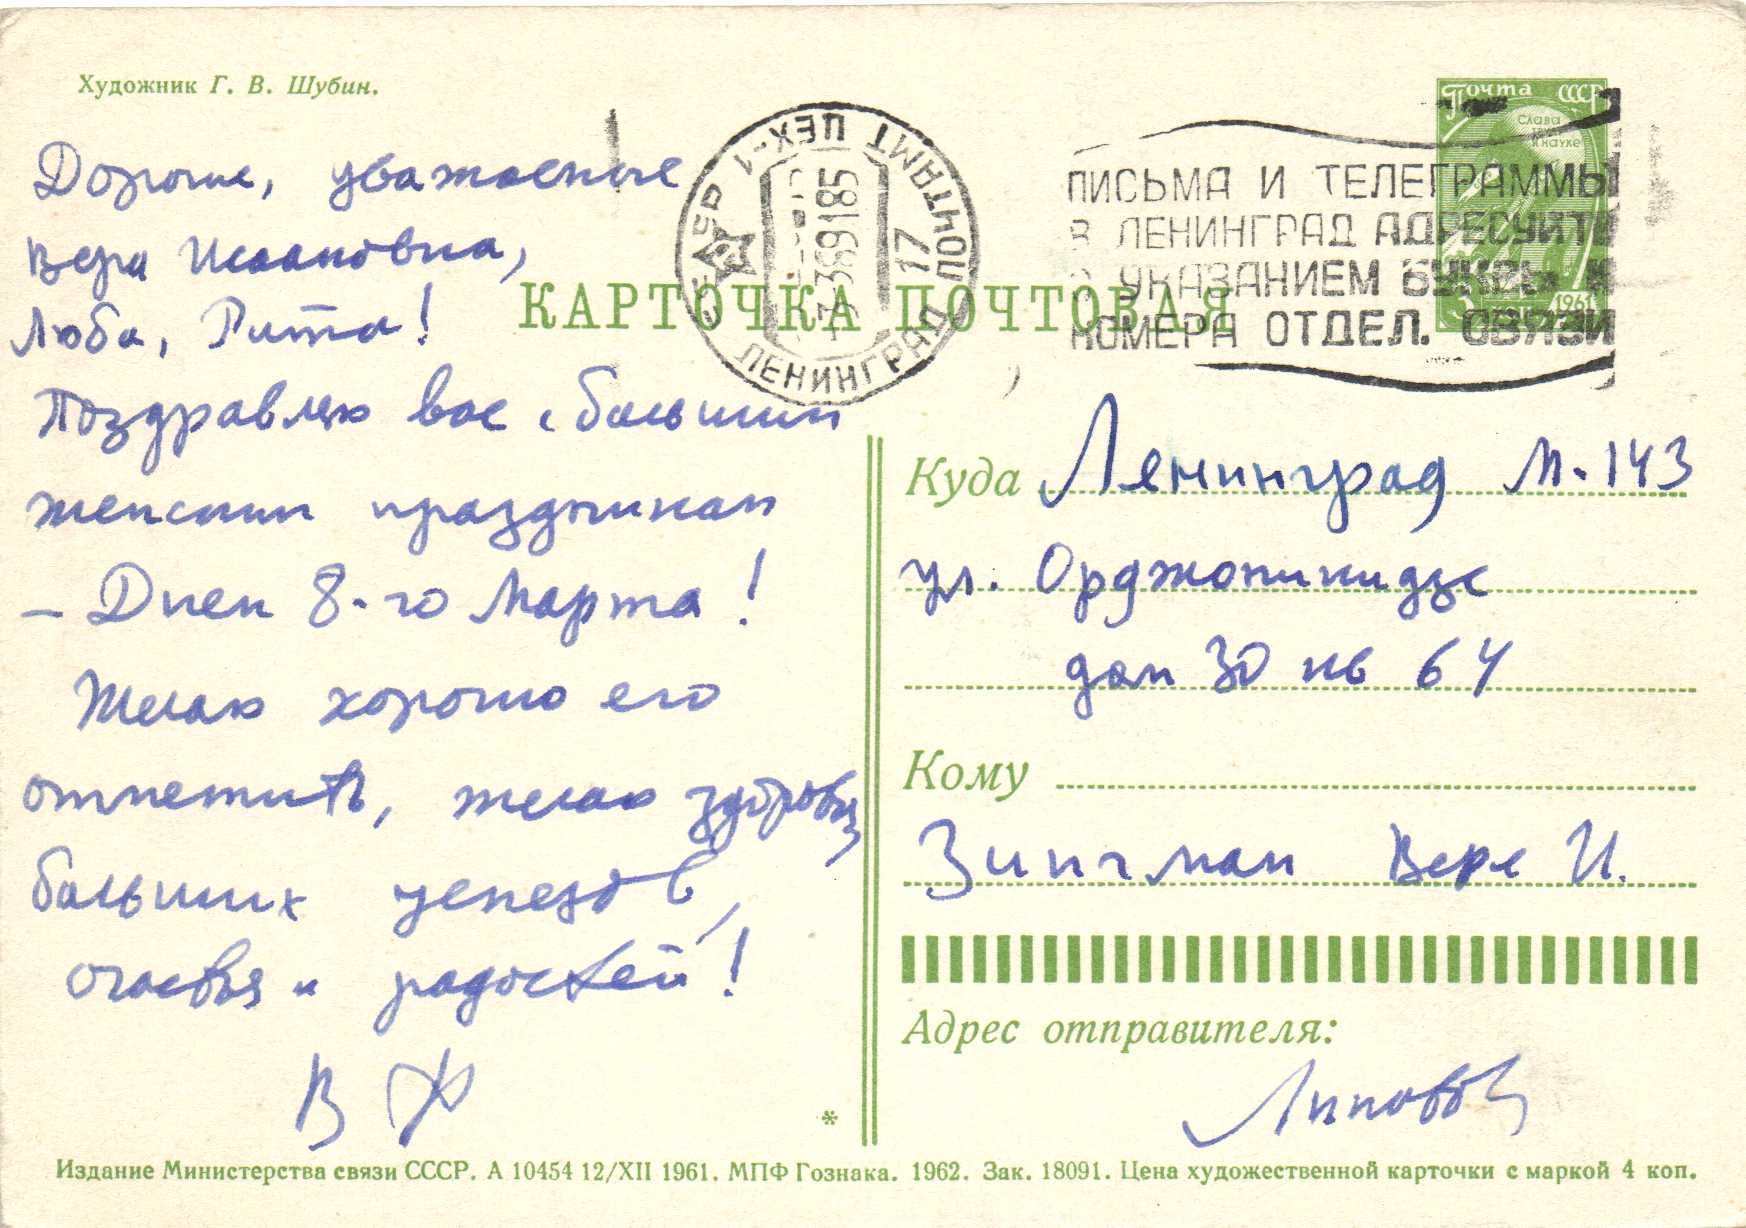 Художник Г. В. Шубин.
Дорогие, уважаемые
Вера Исааковна,
Люба, Рита!
Поздравляю вас с большим
женским праздником
– Днем 8-го Марта!
Желаю хорошо его
отметить, желаю здоровья,
больших успехов,
счастья и радостей!
В
*
КАРТОЧКА ПОЧТОВАЯ
СССР ЛЕНИНГРАД ПОЧТАМТ ЦЕХ-1
17
Почта СССР
Слава
науке
1961
ПИСЬМА И ТЕЛЕГРАММЫ
В ЛЕНИНГРАД АДРЕСУЙТЕ
С УКАЗАНИЕМ БУКВЫ И
НОМЕРА ОТДЕЛ. СВЯЗИ
Куда Ленинград М-143
ул. Орджоникидзе
дом 30 кв 64
Кому
Зингман Вере И.
Адрес отправителя:
Издание Министерства связи СССР. А 10454 12/XII 1961. МПФ Гознака. 1962. Зак. 18091. Цена художественной карточки с маркой 4 коп.